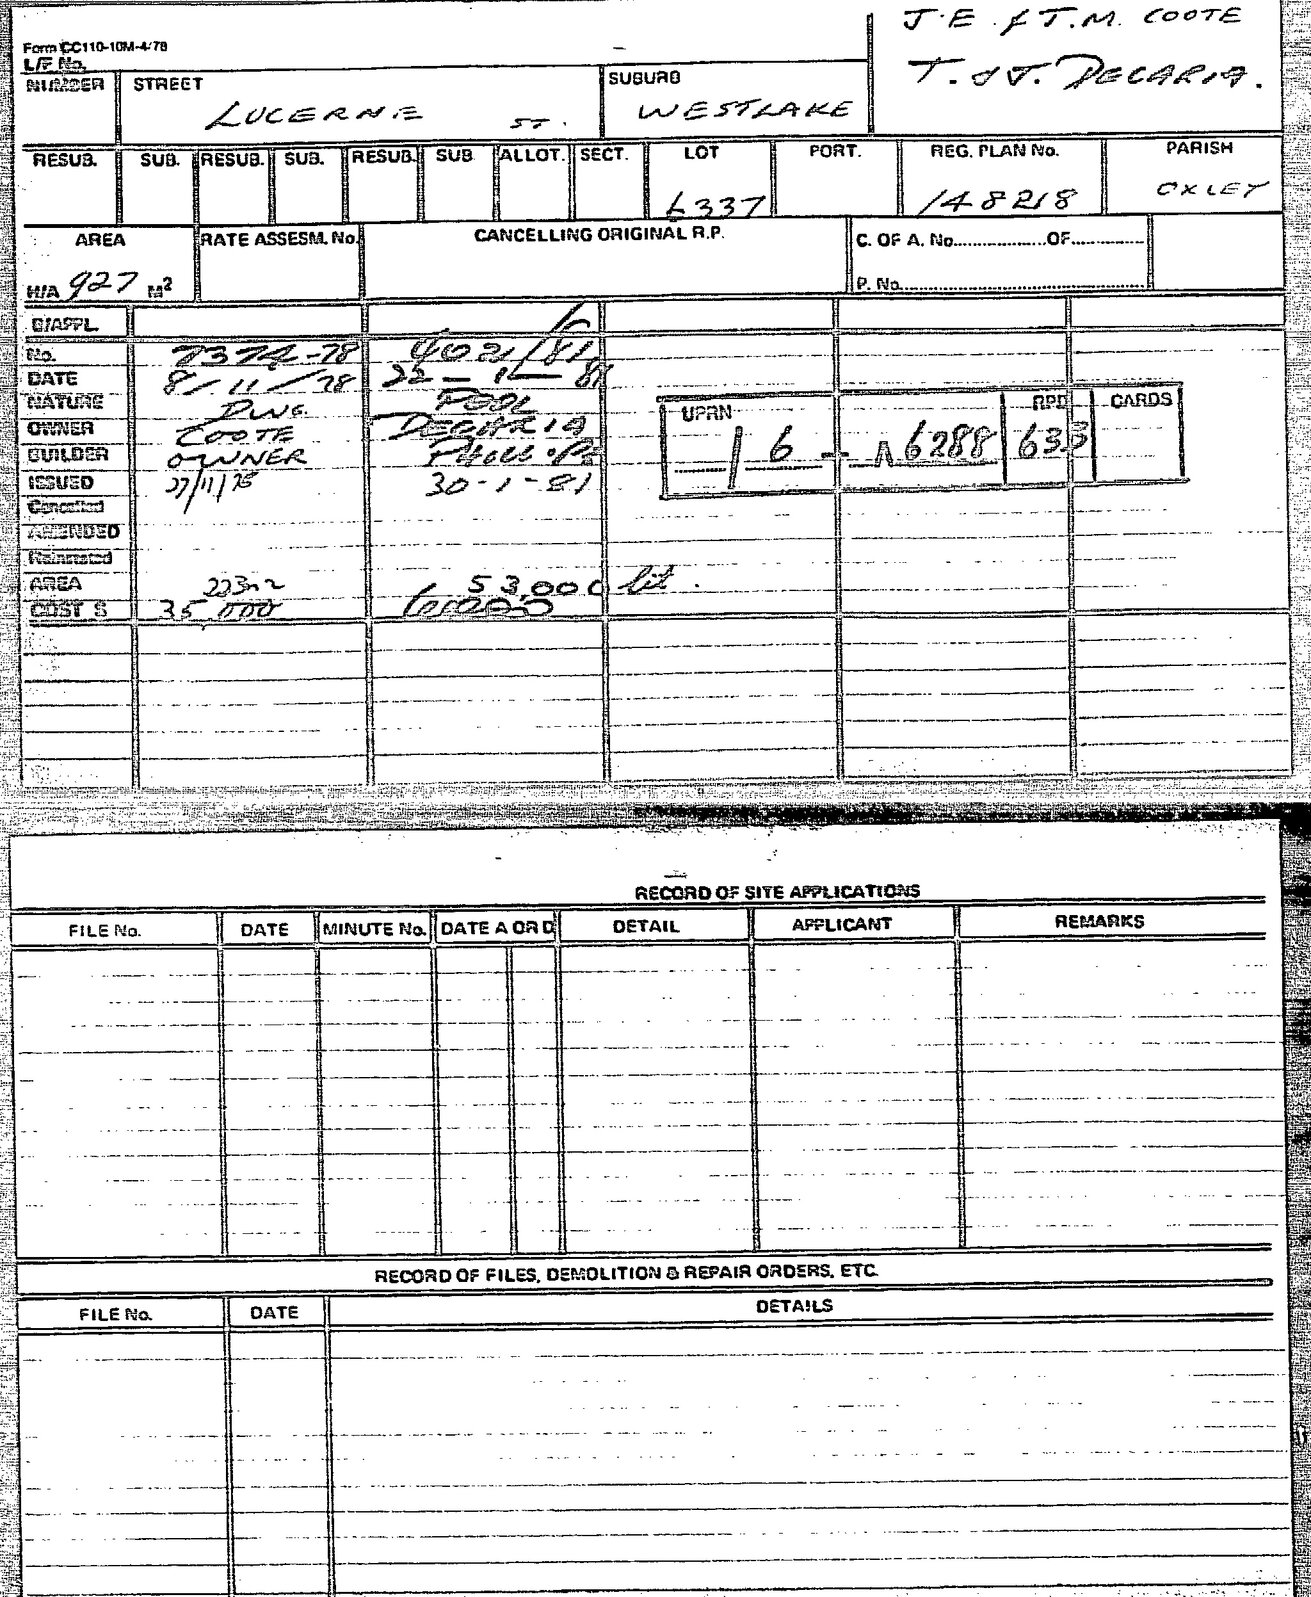 J.E. & T.M. COOTE
Form CC110-10M-4/78
L/F No.
T. & J. DECARIA.
NUMBER STREET SUBURB
LUCERNE ST. WESTLAKE
RESUB. SUB. RESUB. SUB. RESUB. SUB ALLOT. SECT. LOT PORT. REG. PLAN No. PARISH
6337 148218 OXLEY
AREA RATE ASSESM. No. CANCELLING ORIGINAL R.P. C. OF A. No. OF
H/A 927 M2 P. No.
B/APPL.
No. 7374-78 4021/81
DATE 8/11/78 22-1-81
NATURE DWG. POOL
OWNER COOTE DECARIA
BUILDER OWNER
ISSUED 27/11/78 30-1-81
Cancelled
AMENDED
Reinstated
AREA 53,000 lit.
COST $ 35,000
UPRN RPD CARDS
6 - 6288 633
RECORD OF SITE APPLICATIONS
FILE No. DATE MINUTE No. DATE A OR D DETAIL APPLICANT REMARKS
RECORD OF FILES, DEMOLITION & REPAIR ORDERS, ETC.
FILE No. DATE DETAILS